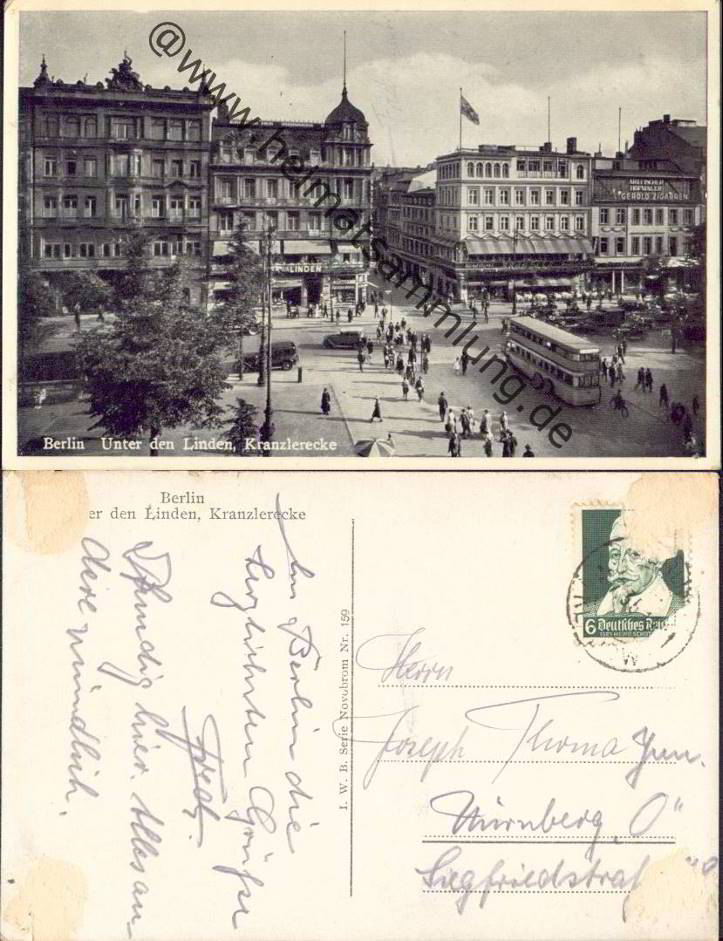 @www.heimatsammlung.de
ARTISCHER
HOFMALER
GEROLD ZIGARREN
LINDEN
Berlin Unter den Linden, Kranzlerecke
Berlin
er den Linden, Kranzlerecke
In Berlin die
herzlichsten Grüße
Fred.
Ständig hier. Alles an-
dere mündlich.
I. W. B. Serie Novobrom Nr. 159
6 Deutsches Rei
1585 HEINR. SCHÜTZ
Herrn
Joseph Thoma Jun.
Nürnberg „O"
Siegfriedstraß